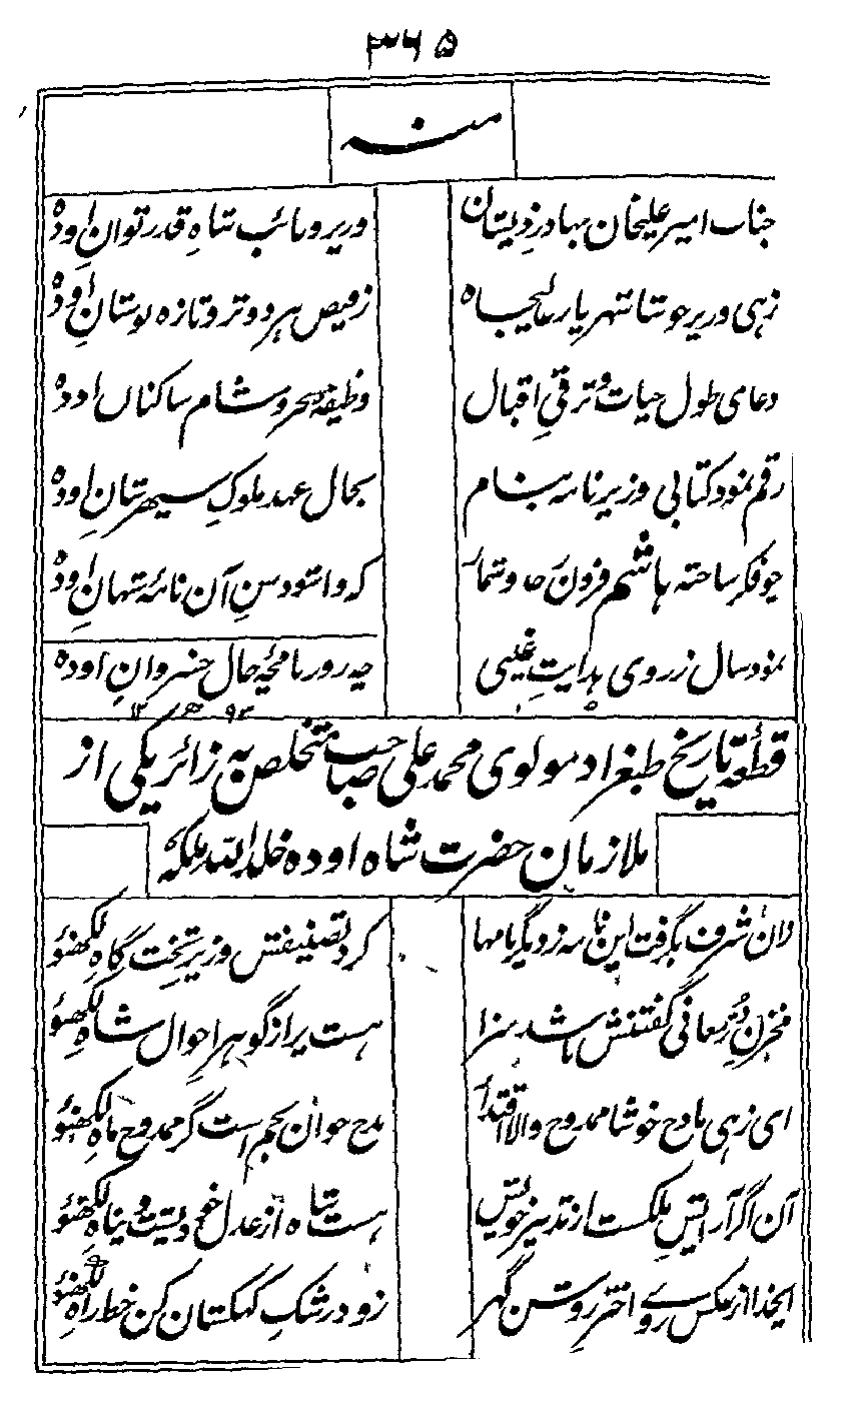 ۳۶۵
منه
جناب امیر علیخان بہادر ذیشان
وزیر و نائب شاہِ قدر توانِ اودہ
زہی وزیر خوشا شہریار عالیجاہ
ز فیض ہر دو تر و تازہ بوستانِ اودہ
دعای طول حیات و ترقیِ اقبال
وظیفہ سحر و شام ساکنان اودہ
رقم نمود کتابی وزیرنامہ بنام
بحال عہد ملوکِ سپہر شانِ اودہ
چو فکر ساختہ ہاشم فزون ز حد و شمار
کہ وا شود سنِ آن نامۂ شہانِ اودہ
نمود سال ز روی ہدایتِ غیبی
چہ روزنامچۂ حال خسروانِ اودہ
۱۲ ھ ۹۳
قطعۂ تاریخ طبعزاد مولوی محمد علی صاحب متخلص بہ زائر یکی از
ملازمان حضرت شاہ اودہ خلد اللہ ملکہ
زان شرف بگرفت این نامہ ز دیگر نامہا
کرد تصنیفش وزیر تختِ گاہِ لکھنؤ
مخزنِ دُرِّ معانی گفتنش باشد سزا
ہست پر از گوہر احوال شاہِ لکھنؤ
ای زہی مادح خوشا ممدوح والا اقتدا
مدح خوان نجم است گر ممدوح ماہِ لکھنؤ
آن اگر آرایشِ ملکست از تدبیر خویش
ہست شاہ از عدل خود پشت و پناہِ لکھنؤ
ایخدا از عکس روے اختر روشن گہر
زود رشکِ کہکشان کن خط راہِ لکھنؤ